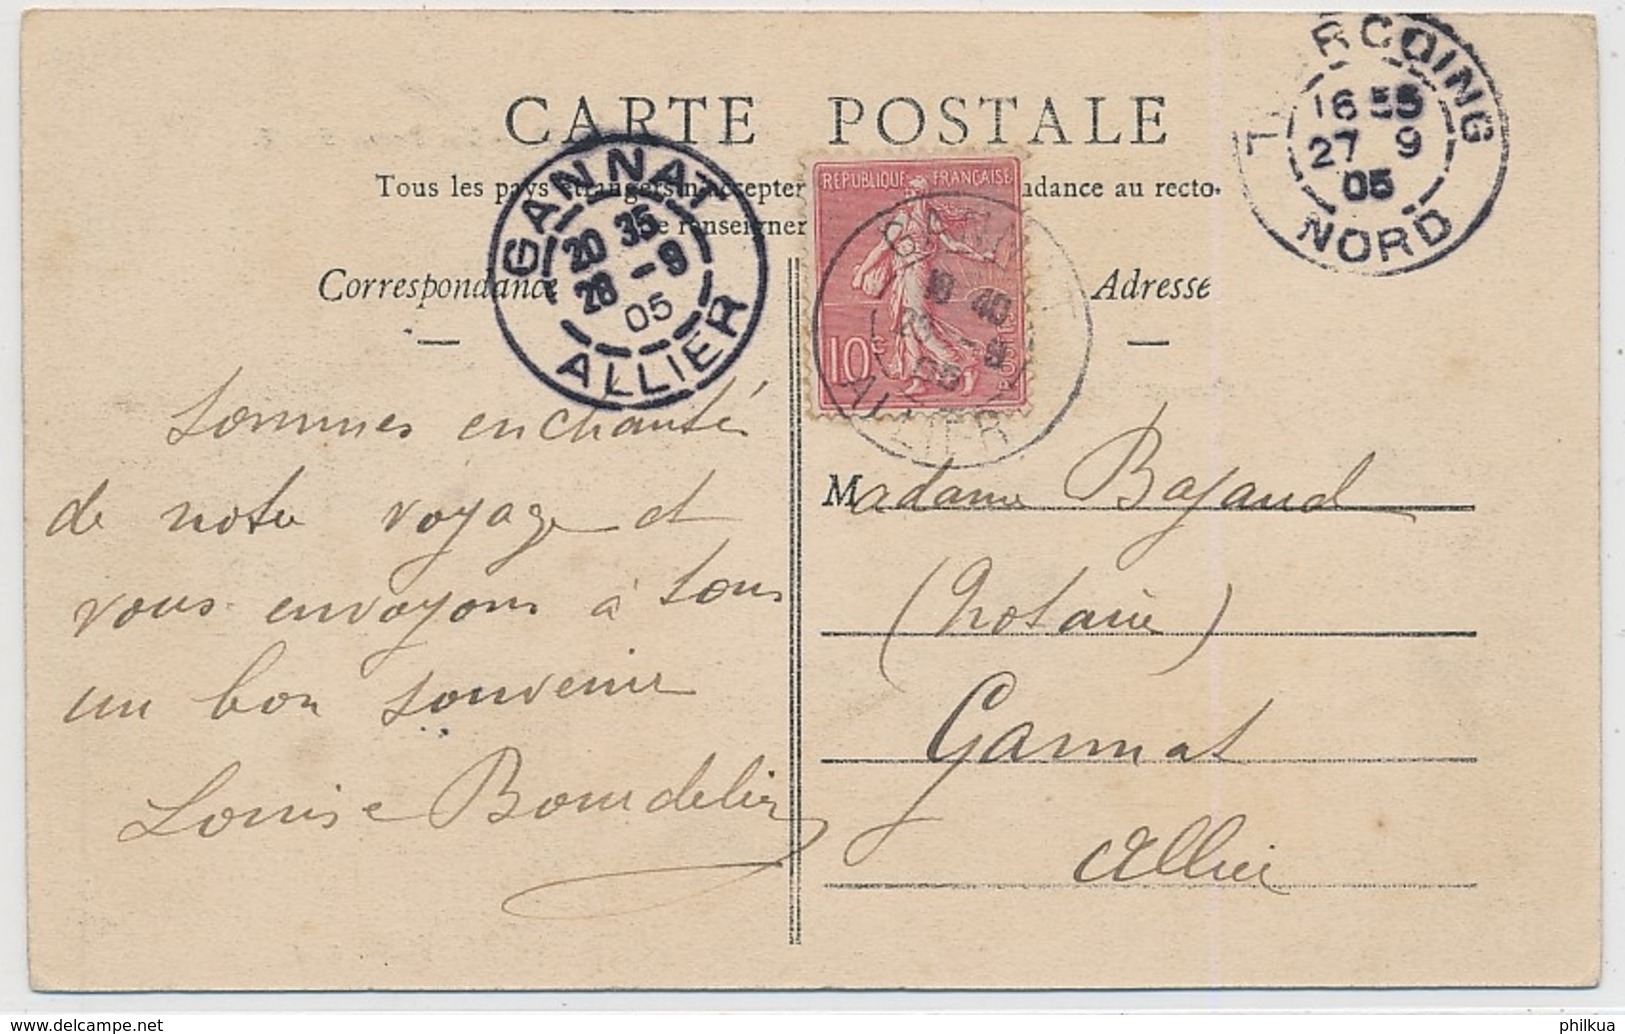 CARTE POSTALE
Tous les pays étrangers n'acceptent dance au recto.
se renseigner
Correspondance
Adresse
RCOING
16 55
27 9
05
NORD
GANNAT
20 35
28 -9
05
ALLIER
REPUBLIQUE FRANÇAISE
10c
POSTES
ALLIER
Sommes enchanté
de notre voyage et
vous envoyons à tous
un bon souvenir
Louise Bourdelier
Madame Bajaud
(Notaire)
Gannat
Allier
www.delcampe.net
philkua